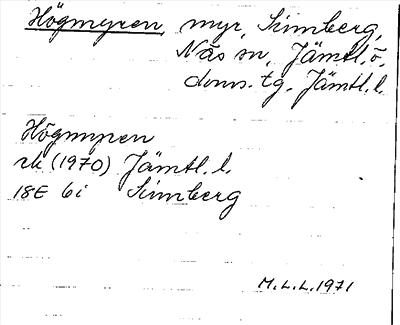 Högmyren, myr, Simberg,
Näs sn, Jämtl. ö.
doms. tg, Jämtl. l.
Högmyren
rk (1970) Jämtl. l.
18E 6i Simberg
M.L.L. 1971